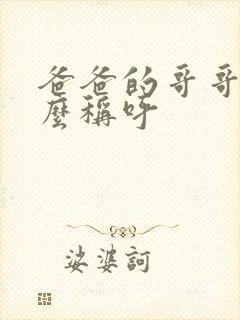 爸爸的哥哥
麼稱呼
娑婆訶